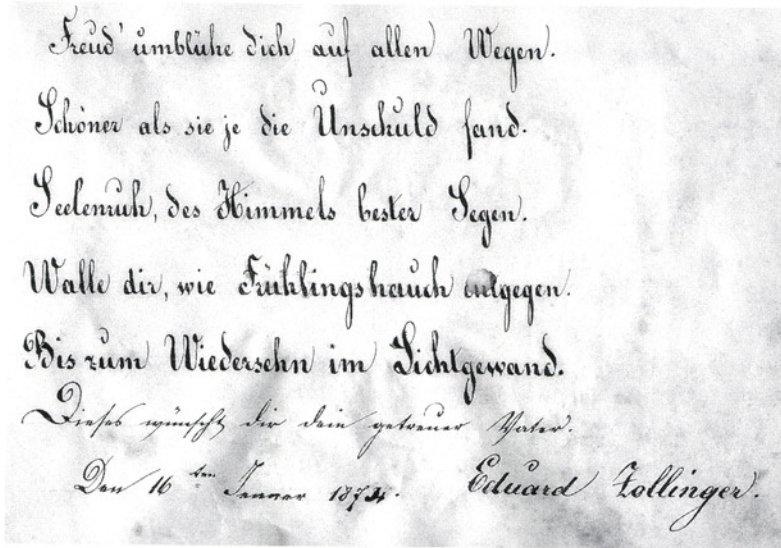 Freud' umblühe dich auf allen Wegen.
Schöner als sie je die Unschuld fand.
Seelenruh, des Himmels bester Segen.
Walle dir, wie Frühlingshauch entgegen.
Bis zum Wiedersehn im Lichtgewand.
Dieses wünscht dir dein getreuer Vater.
Den 16ten Jenner 1874. Eduard Zollinger.